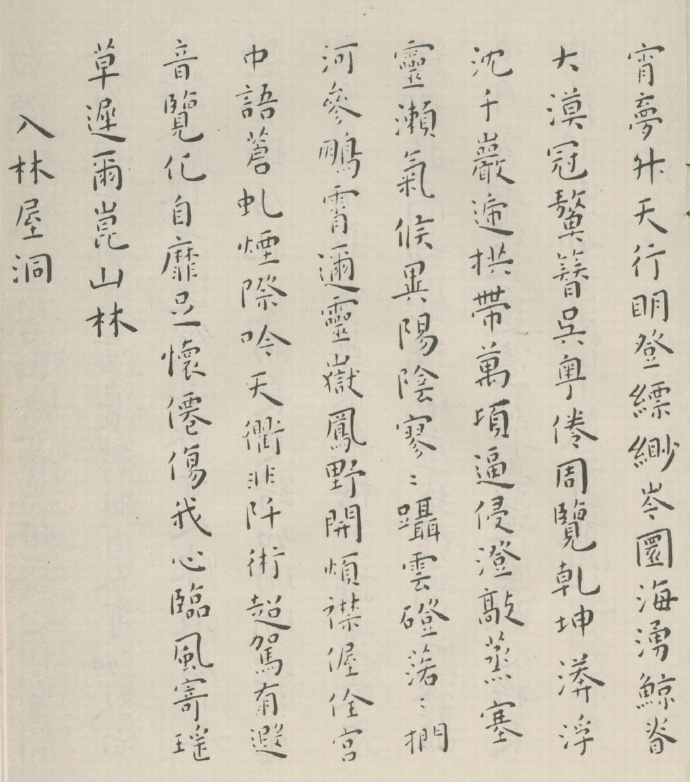 宵夢升天行明登縹緲岑圜海湧鯨脊
大漠冠鼇簪吳粤倦周覽乾坤漭浮
沈千巖遞拱帶萬頃逼侵澄歊蒸塞
靈瀨氣候異陽陰寥〻躡雲磴落〻捫
河參鵰霄邇靈嶽鳳野開煩襟偓佺宮
中語蒼虬煙際吟天衢非阡術超駕有遐
音覽化自靡足懷僊傷我心臨風寄瑤
草遲爾崑山林
入林屋洞